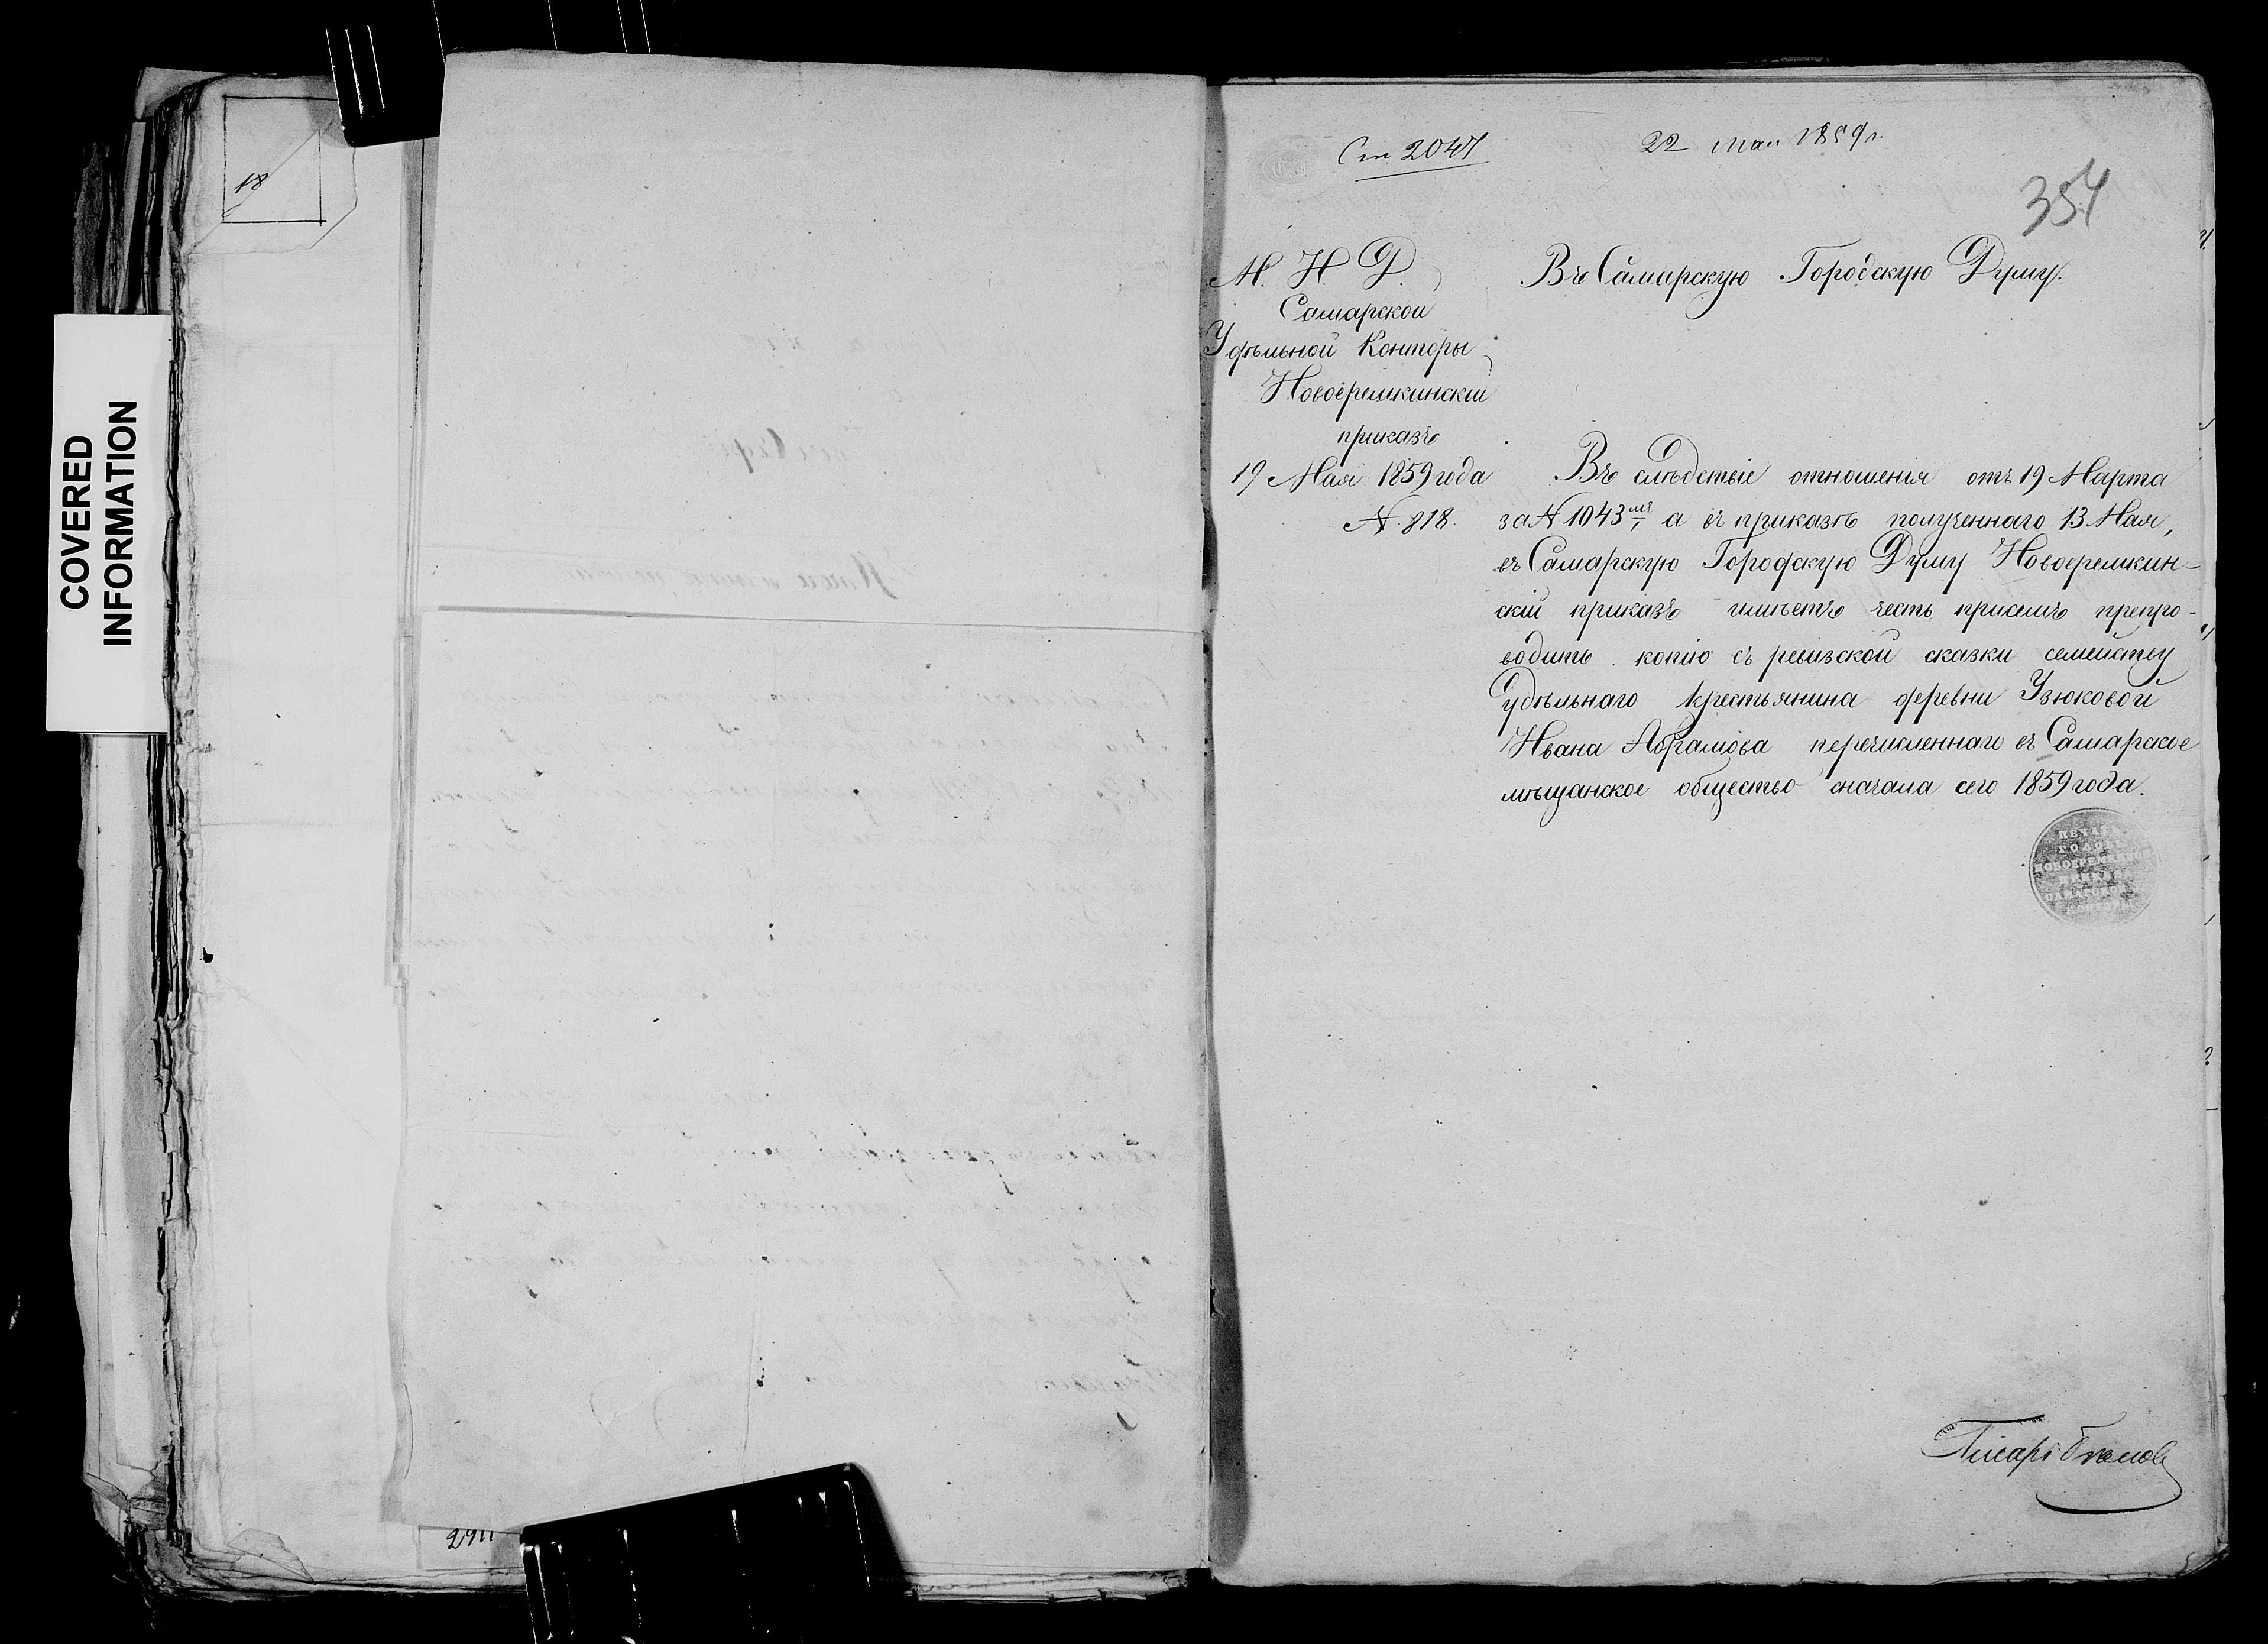 COVERED
INFORMATION
18
2911
Ст 2047
22 мая 1859 г.
354
М. И. Д.
Самарской
Удѣльной Конторы
Новоеремкинскій
приказъ
19 Мая 1859 года
№ 818.
Въ Самарскую Городскую Думу.
Въ слѣдствіе отношенія отъ 19 Марта
за № 1043 а въ приказѣ полученнаго 13 Мая,
въ Самарскую Городскую Думу Новоеремкин-
скій приказъ имѣетъ честь присемъ препро-
водить копію съ ревизской сказки семейству
удѣльнаго крестьянина деревни Узюковой
Ивана Абрамова перечисленнаго въ Самарское
мѣщанское общество сначала сего 1859 года.
ПЕЧАТЬ
Писарь